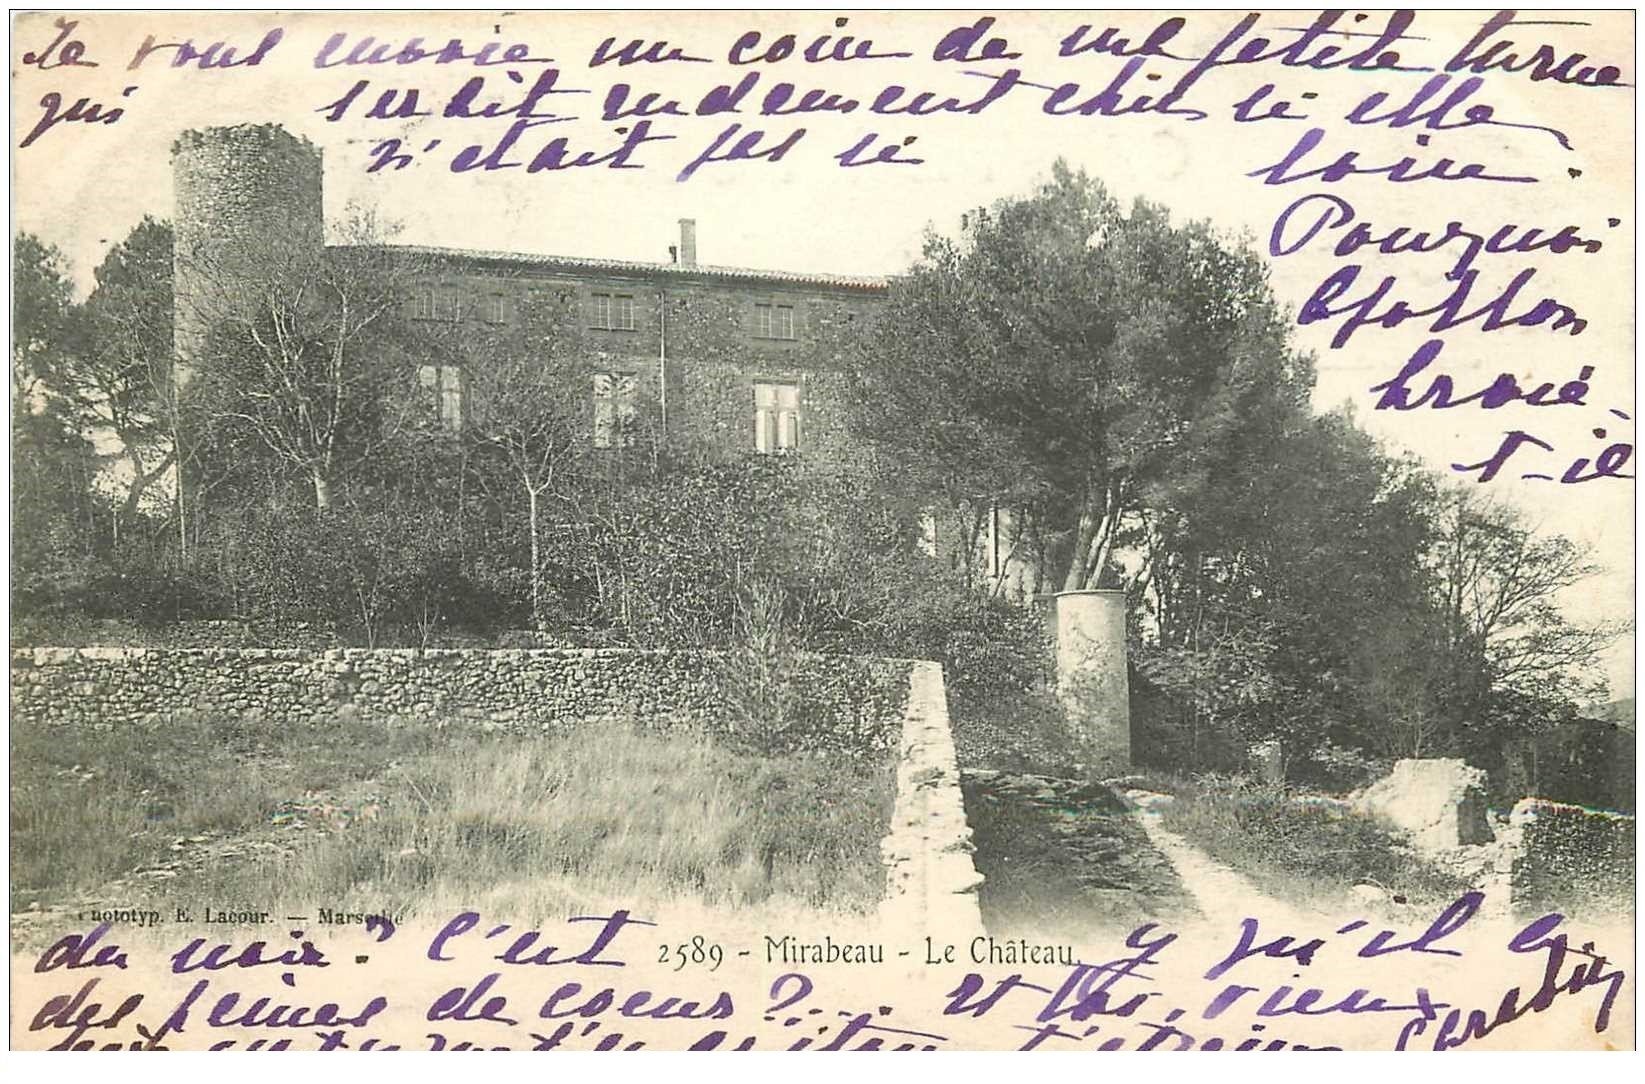 Je vous envoie un coin de ma petite turne
qui serait rudement chic si elle
n'était pas si loin.
Pourquoi
Apollon
broie-
t-il
Phototyp. E. Lacour. — Marseille
2589 - Mirabeau - Le Château.
du noir? C'est qu'il a
des peines de coeur?.... et toi, vieux